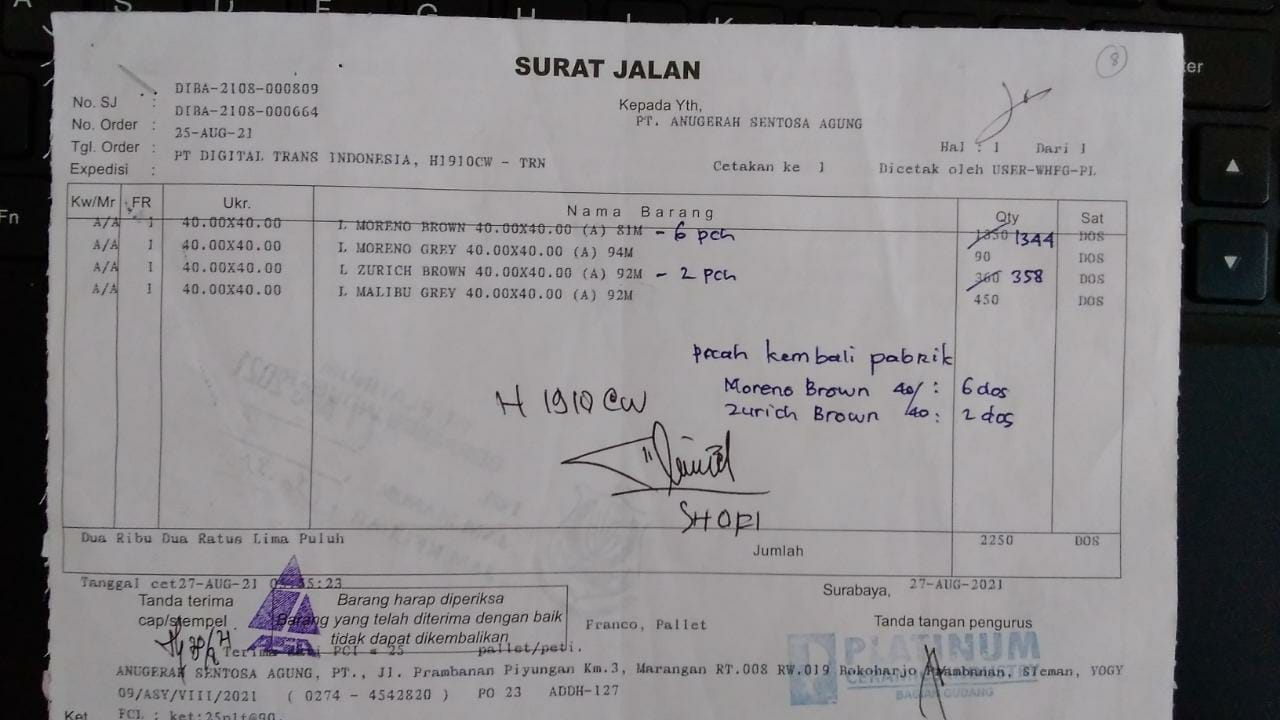 SURAT JALAN
8
No. SJ : DIBA-2108-000809
No. Order : DIBA-2108-000664
Tgl. Order : 25-AUG-21
Expedisi : PT DIGITAL TRANS INDONESIA, H1910CW - TRN
Kepada Yth,
PT. ANUGERAH SENTOSA AGUNG
Hal : 1 Dari 1
Cetakan ke 1 Dicetak oleh USER-WHFG-PL
Kw/Mr FR Ukr. Nama Barang Qty Sat
A/A 1 40.00X40.00 L MORENO BROWN 40.00X40.00 (A) 81M - 6 pch 1350 1344 DOS
A/A 1 40.00X40.00 L MORENO GREY 40.00X40.00 (A) 94M 90 DOS
A/A 1 40.00X40.00 L ZURICH BROWN 40.00X40.00 (A) 92M - 2 pch 360 358 DOS
A/A 1 40.00X40.00 L MALIBU GREY 40.00X40.00 (A) 92M 450 DOS
pecah kembali pabrik
Moreno Brown 40/: 6 dos
Zurich Brown /40: 2 dos
H 1910 CW
Dua Ribu Dua Ratus Lima Puluh
Jumlah 2250 DOS
Tanggal cet27-AUG-21
Surabaya, 27-AUG-2021
Tanda terima
cap/stempel
Barang harap diperiksa
Barang yang telah diterima dengan baik
tidak dapat dikembalikan
Franco, Pallet
Tanda tangan pengurus
PLATINUM
BAGIAN GUDANG
PCI = 25 pallet/peti.
ANUGERAH SENTOSA AGUNG, PT., Jl. Prambanan Piyungan Km.3, Marangan RT.008 RW.019 Bokoharjo Prambanan, Sleman, YOGY
09/ASY/VIII/2021 ( 0274 - 4542820 ) PO 23 ADDH-127
Ket FCL : ket:25plt@90.